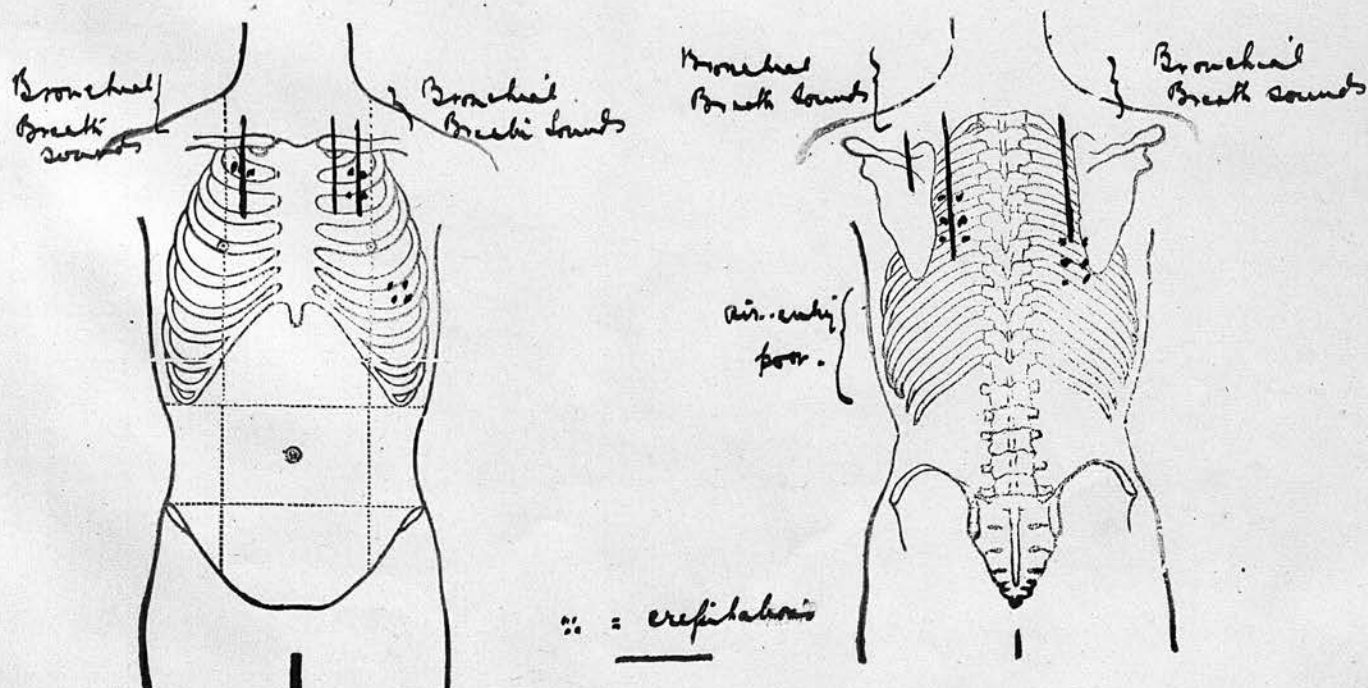 Bronchial
Breath
sounds
Bronchial
Breath Sounds
Bronchial
Breath sounds
Bronchial
Breath sounds
air-entry
poor.
:: = crepitations